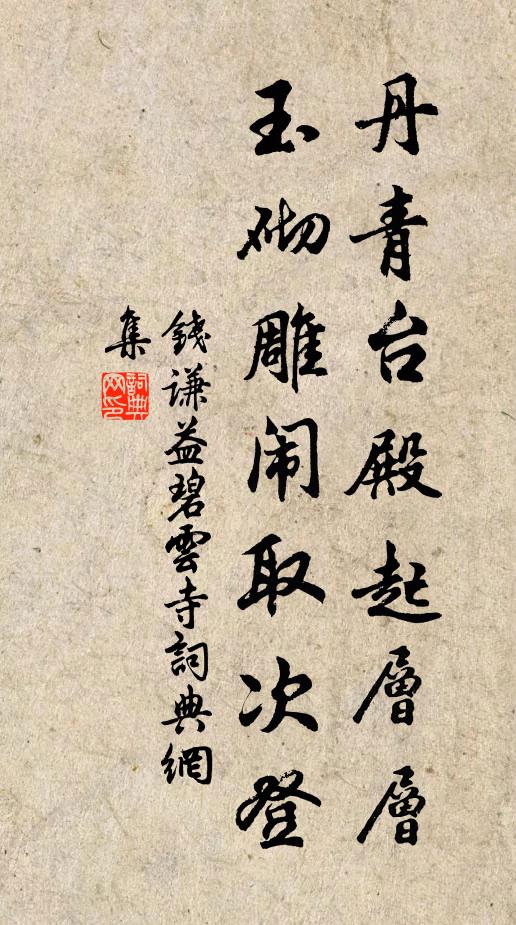 丹青台殿起層層
玉砌雕闹取次登
錢謙益碧雲寺詞典網
集
詞典
网印